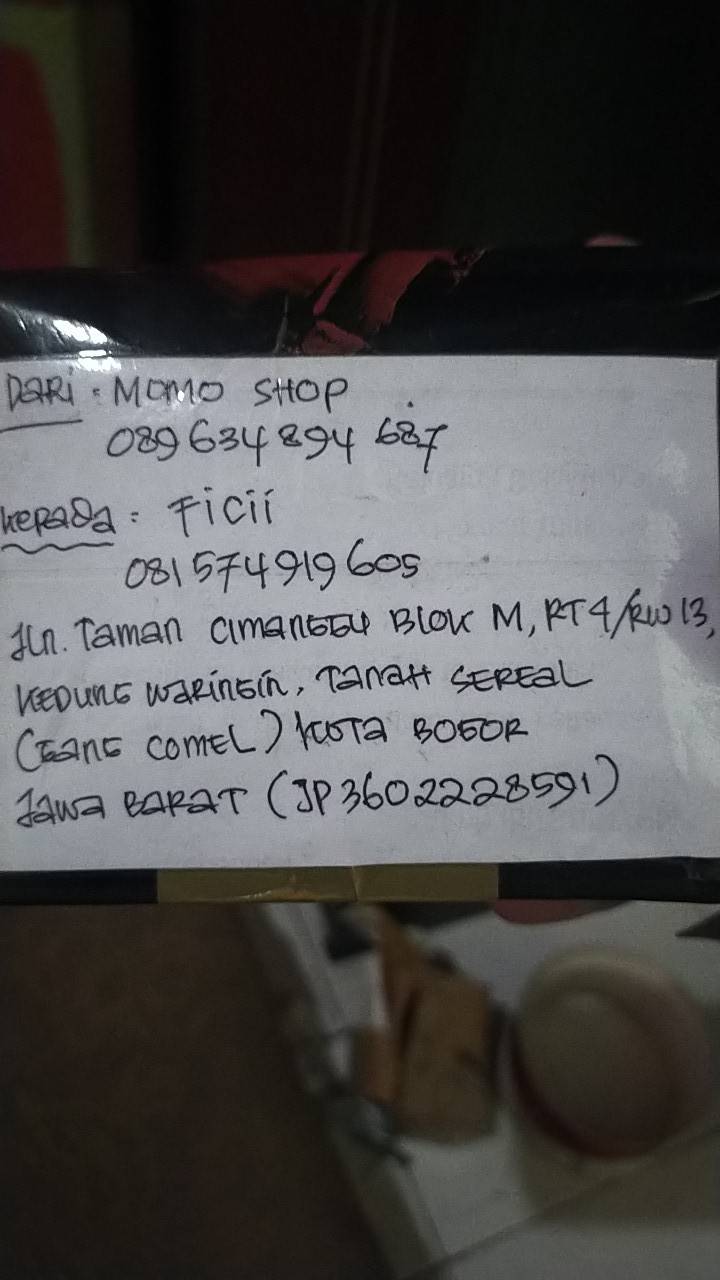 Dari : MOMO SHOP
089 634 894 687
Kepada : Ficii
081574919605
Jln. Taman Cimanggu Blok M, RT4/RW13,
Kedung Waringin, Tanah Sereal
(Gang Comel) Kota Bogor
Jawa Barat (JP3602228591)